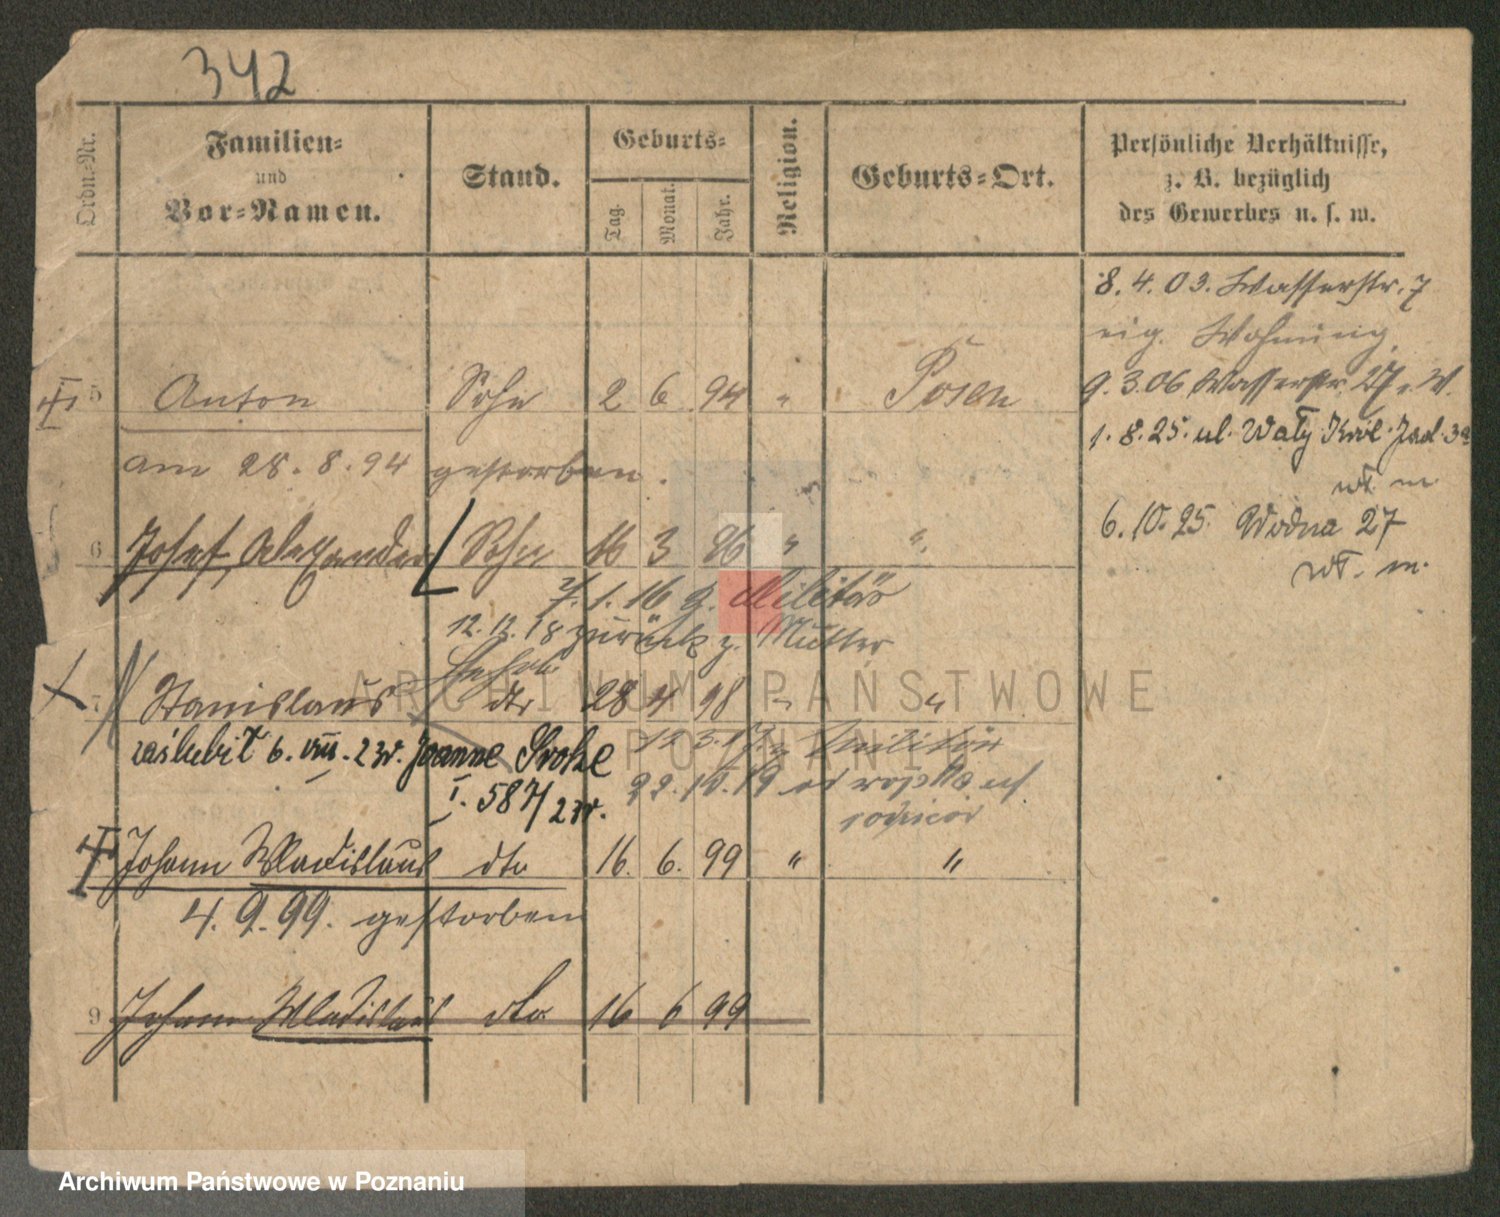 342
Ordn.-Nr.
Familien-
und
Vor-Namen.
Stand.
Geburts-
Tag.
Monat.
Jahr.
Religion.
Geburts-Ort.
Persönliche Verhältnisse,
z. B. bezüglich
des Gewerbes u. s. w.
8. 4. 03. Wasserstr. 7
eig. Wohnung.
9. 3. 06 Wasserstr. 27 W.
1. 8. 25. ul. Wały Król. Jad. 3a
wł. m.
6. 10. 25. Wodna 27
wł. m.
5 Anton Sohn 2 6 94 " Posen
am 28. 8. 94 gestorben.
6 Josef, Alexander Sohn 16 3 96 " "
1. 16 z. Militär
12. 12. 18 zurück z. Mutter
7 Stanislaus dto 28 4 98 " "
zaślubił 6. VIII. 23r. Joannę
12. 3. 17 z. Militär
I. 587/23r.
22. 10. 19 od
Johann Wladislaus dto 16. 6. 99 " "
4. 9. 99. gestorben
9 Johann Wladislaus dto 16 6 99
ARCHIWUM PAŃSTWOWE
POZNANIU
Archiwum Państwowe w Poznaniu